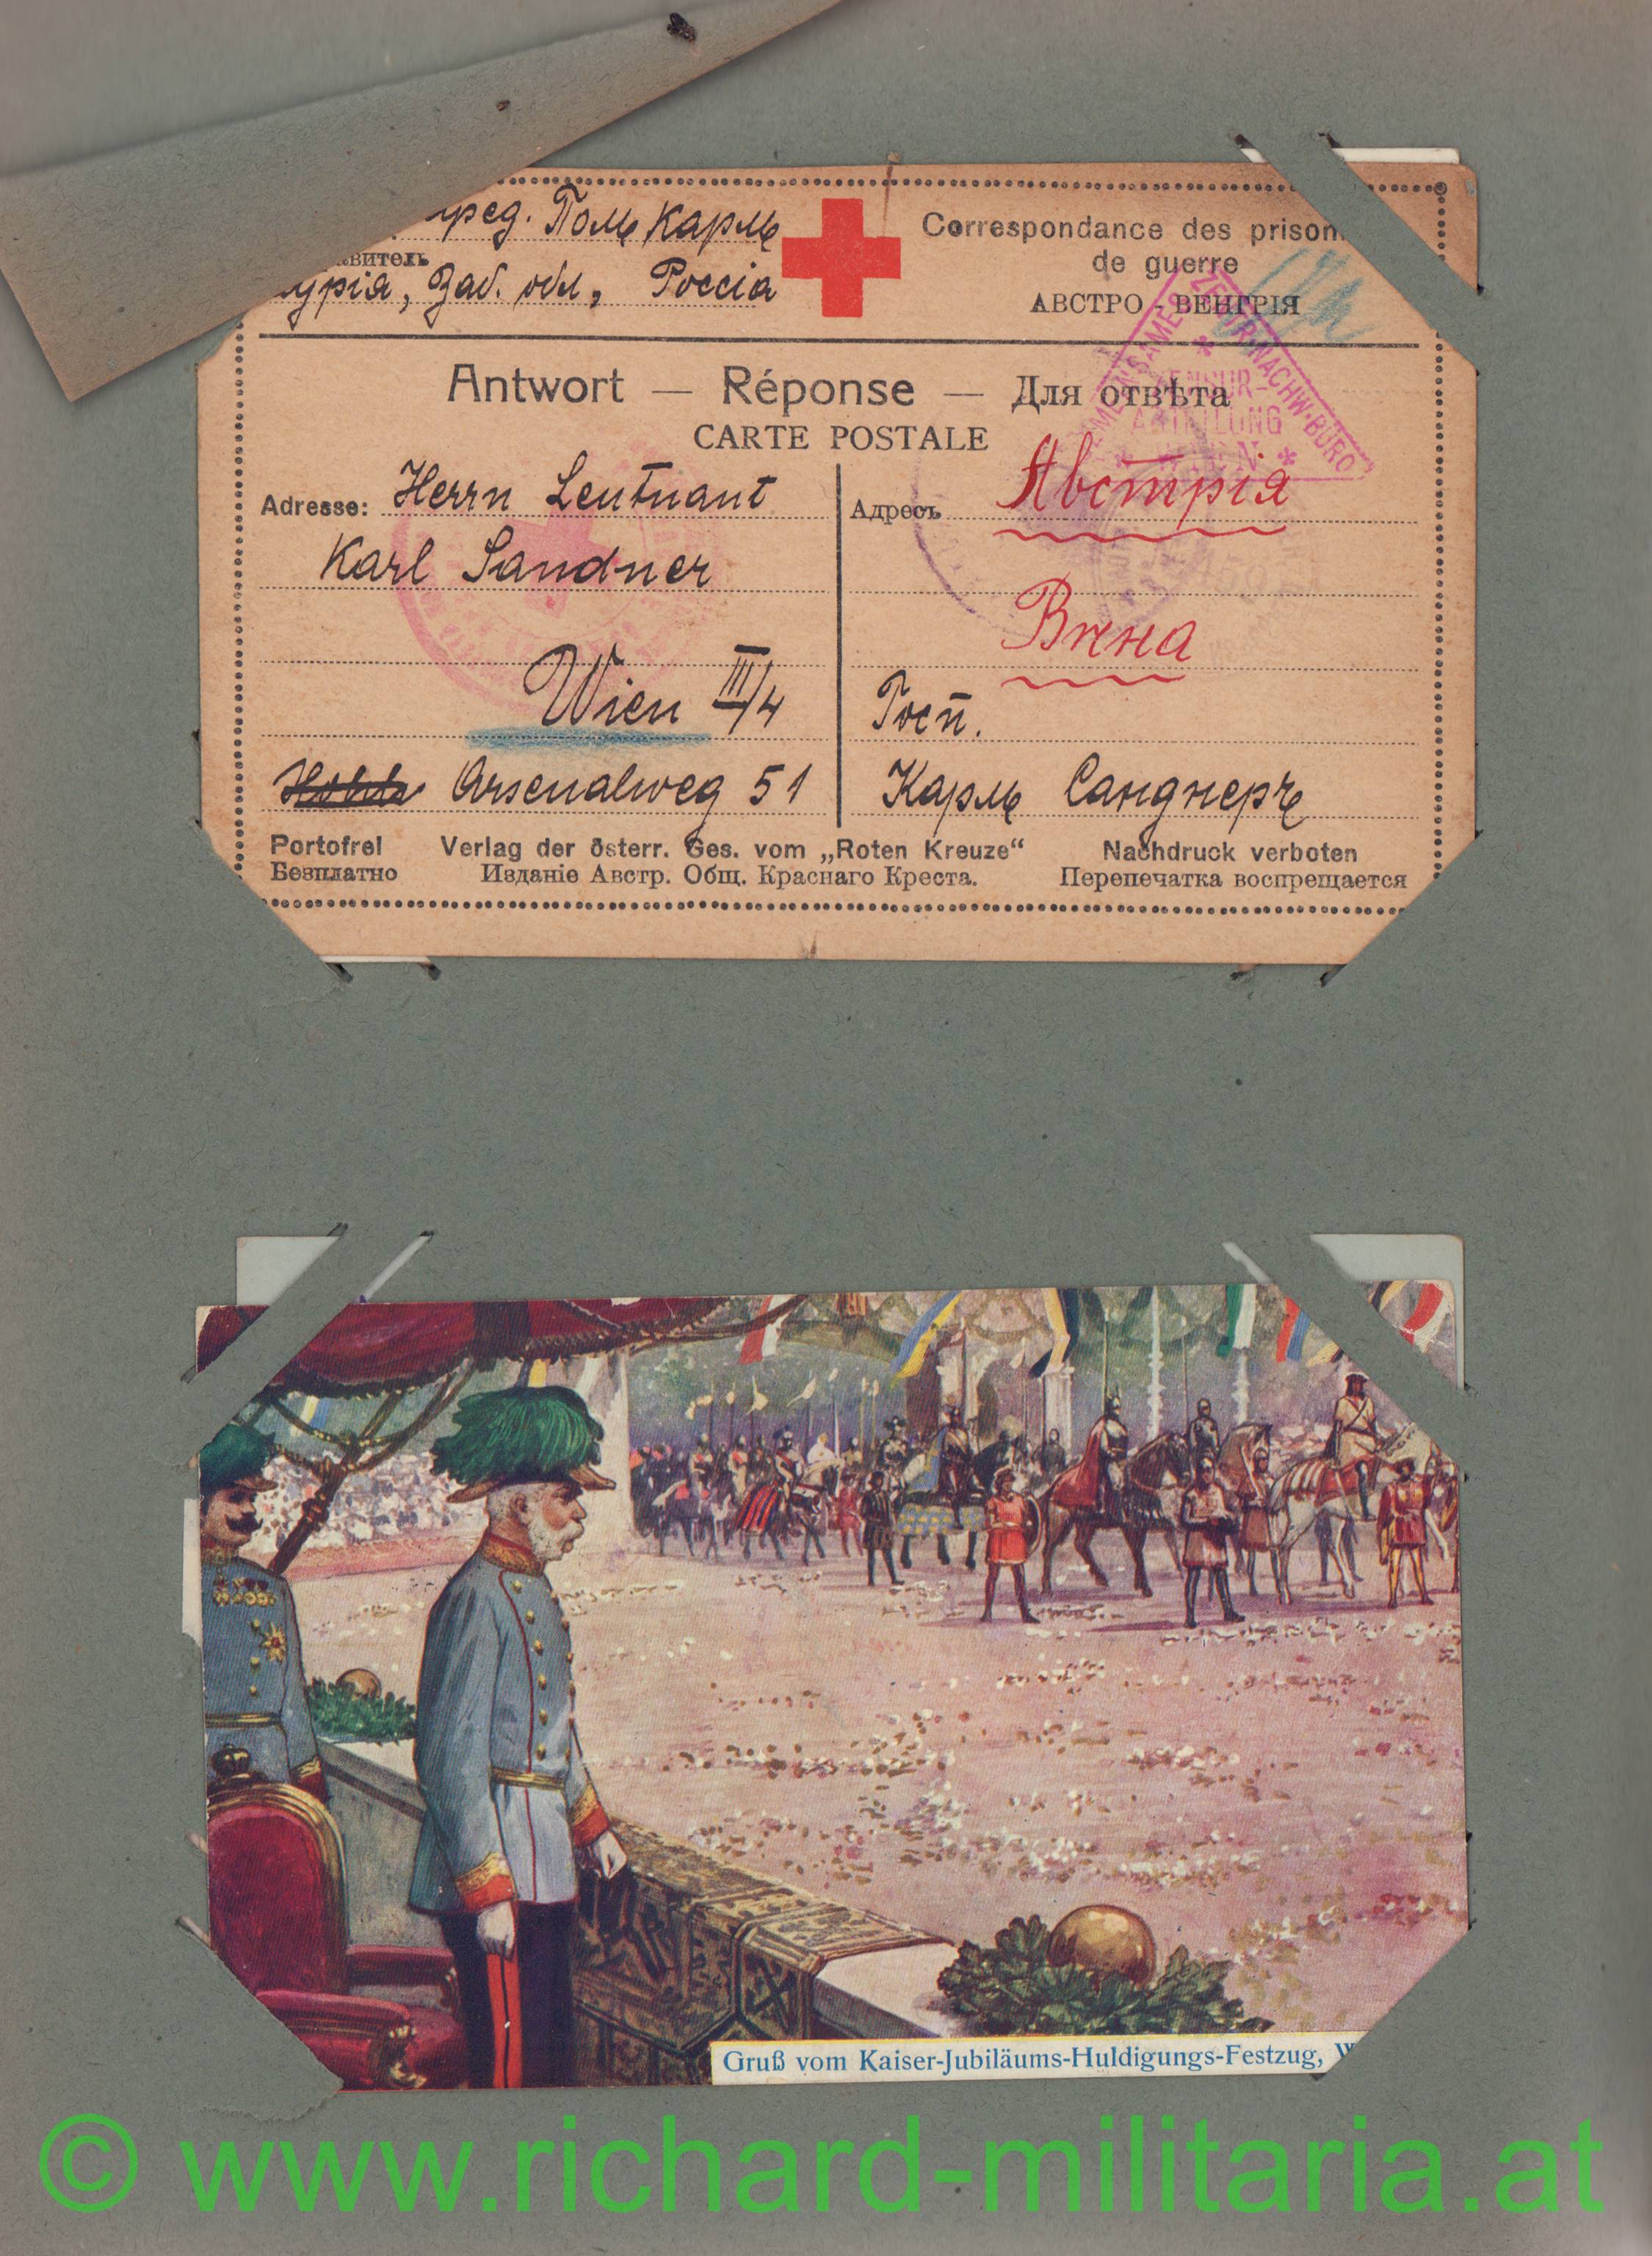 пред. Поль Карль
витель
урія, Заб. обл., Россія
Correspondance des prison
de guerre
АВСТРО - ВЕНГРІЯ
GEMEINSAMES ZENTR. NACHW-BÜRO
ZENSUR-
ABTEILUNG
WIEN
Antwort — Réponse — Для отвѣта
CARTE POSTALE
Adresse: Herrn Leutnant
Karl Sandner
Wien III/4
Arsenalweg 51
Адресъ Австрія
Вѣна
Госп.
Карль Санднеръ
Portofrei Verlag der österr. Ges. vom „Roten Kreuze“ Nachdruck verboten
Безплатно Изданіе Австр. Общ. Краснаго Креста. Перепечатка воспрещается
Gruß vom Kaiser-Jubiläums-Huldigungs-Festzug, W
© www.richard-militaria.at